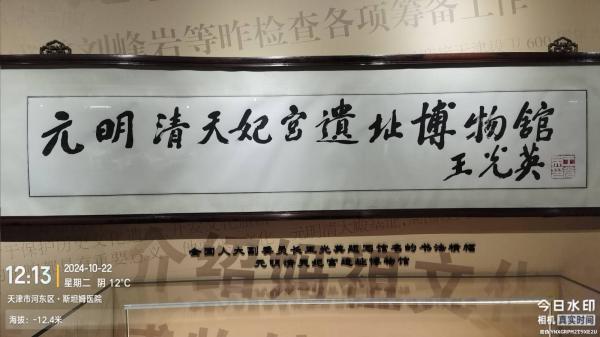 刘峰岩等昨检查各项筹备工作
600
元明清天妃宫遺址博物館
王光英
全国人大副委员长王光英题写馆名的书法横幅
元明清天妃宫遗址博物馆
介绍妈祖文化
12:13
2024-10-22
星期二 阴 12℃
天津市河东区·斯坦姆医院
海拔：-12.4米
今日水印
相机 真实时间